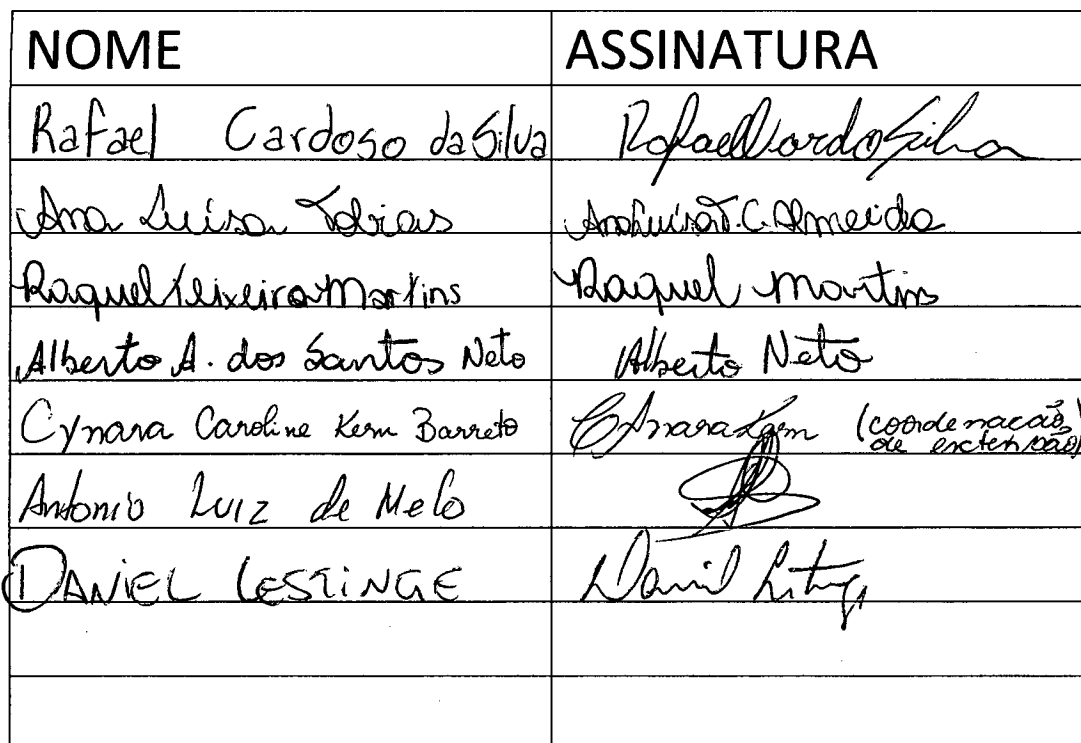 NOME ASSINATURA
Rafael Cardoso da Silva Rafael Cardo Silva
Ana Luísa Tobias Ana Luísa T. C. Almeida
Raquel Teixeira Martins Raquel Martins
Alberto A. dos Santos Neto Alberto Neto
Cynara Caroline Kern Barreto Cynara Kern (coordenação de extensão)
Antonio Luiz de Melo
DANIEL LESTINGE Daniel